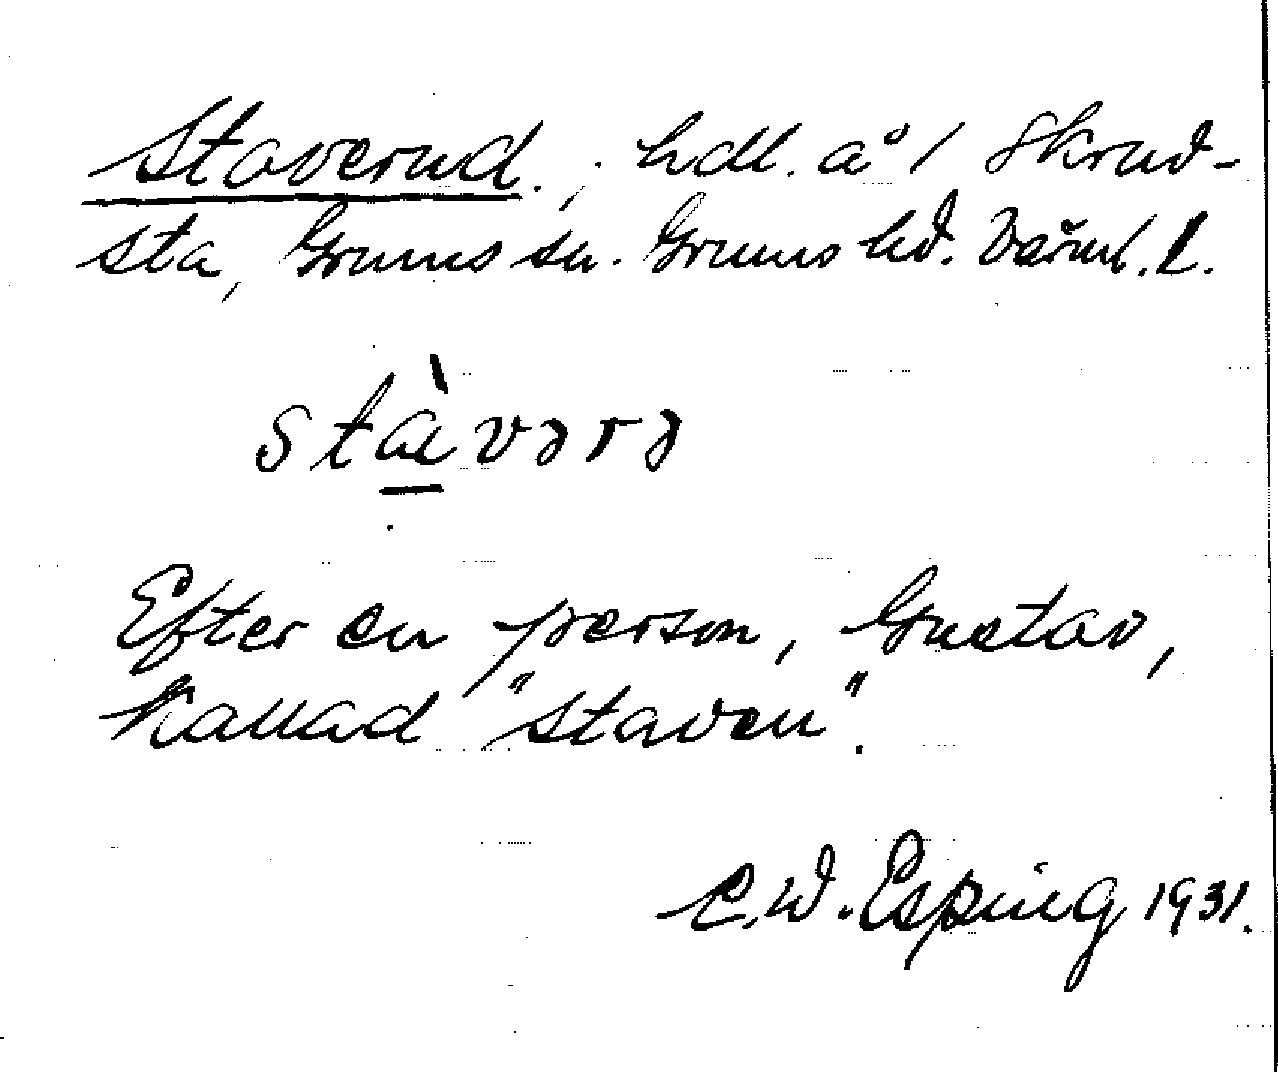 Staverud., hdl. å 1 Skrud-
sta, Grums sn. Grums hd. Värml. l.
stàvərə
Efter en person, Gustav,
kallad "staven".
C.W. Esping 1931.